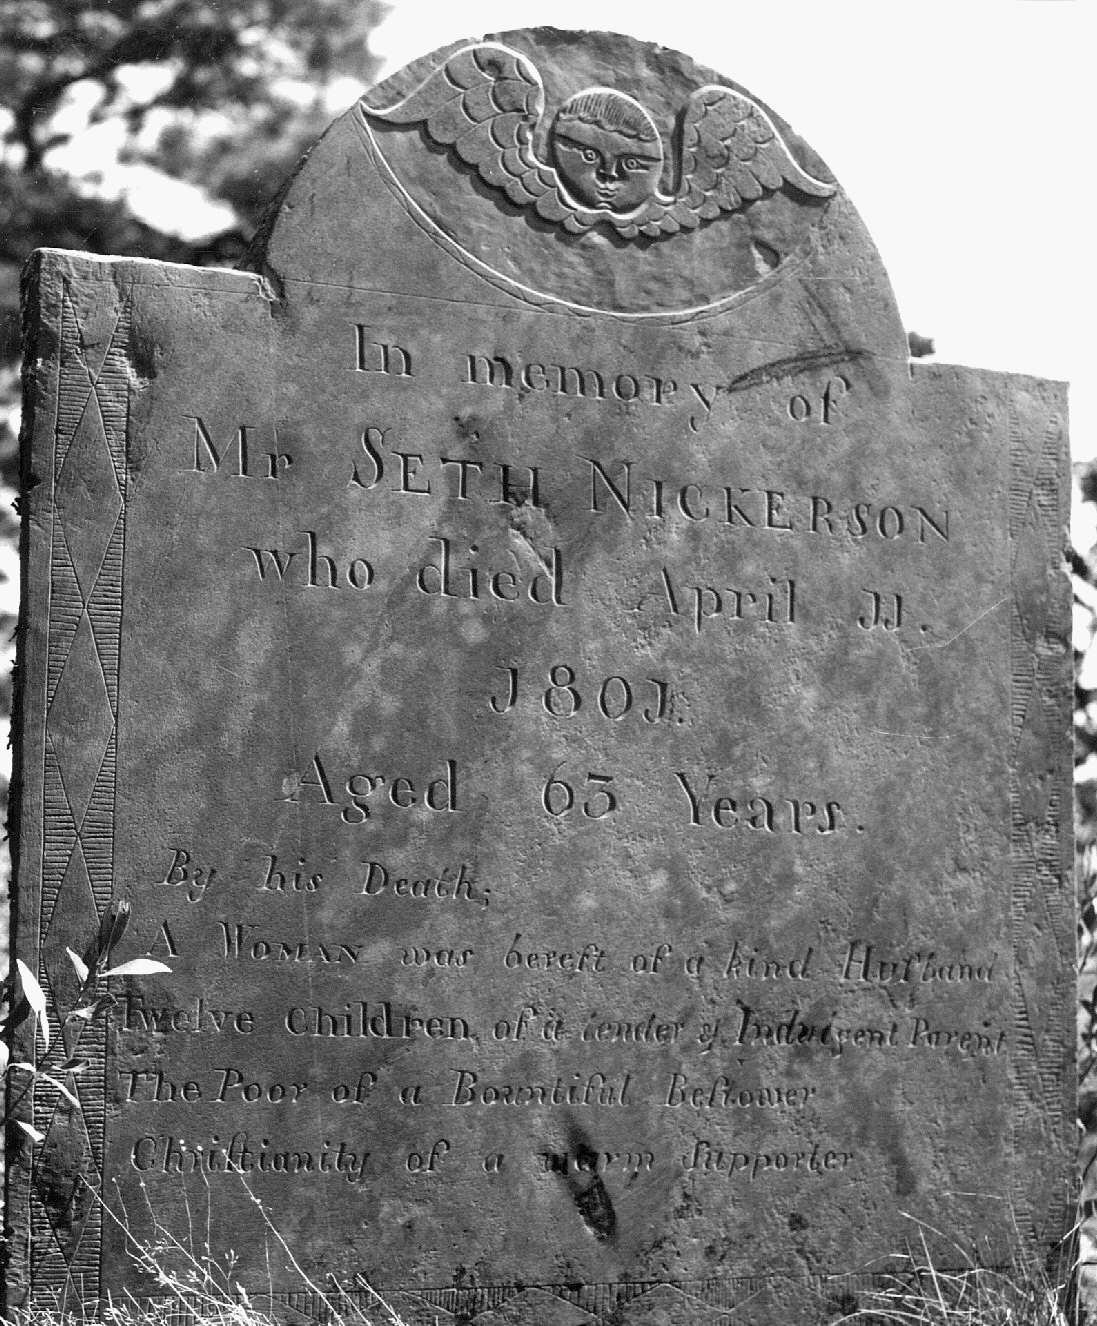 In memory of
Mr SETH NICKERSON
who died April JJ.
J80J.
Aged 63 Years.
By his Death;
A WOMAN was bereft of a kind Huſband
Twelve Children, of a tender & Indulgent Parent
The Poor of a Bountiful Beſtower
Chriſtianity of a warm ſupporter